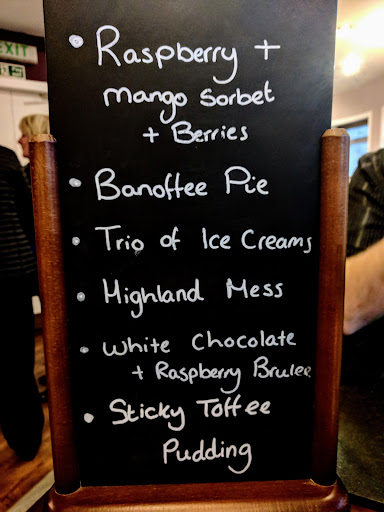 EXIT
• Raspberry +
Mango Sorbet
+ Berries
• Banoffee Pie
• Trio of Ice Creams
• Highland Mess
• White Chocolate
+ Raspberry Brulee
• Sticky Toffee
Pudding